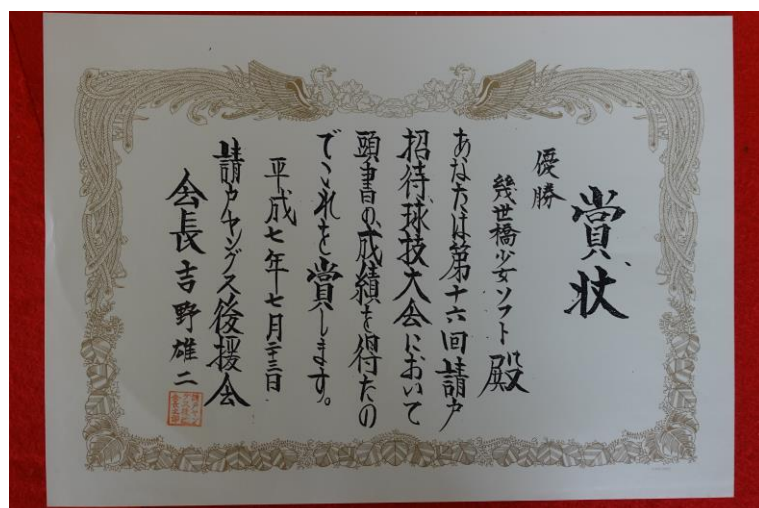 賞状
優勝
幾世橋少女ソフト殿
あなたは第十六回請戸
招待球技大会において
頭書の成績を得たの
でこれを賞します。
平成七年七月二十三日
請戸ヤングス後援会
会長吉野雄二